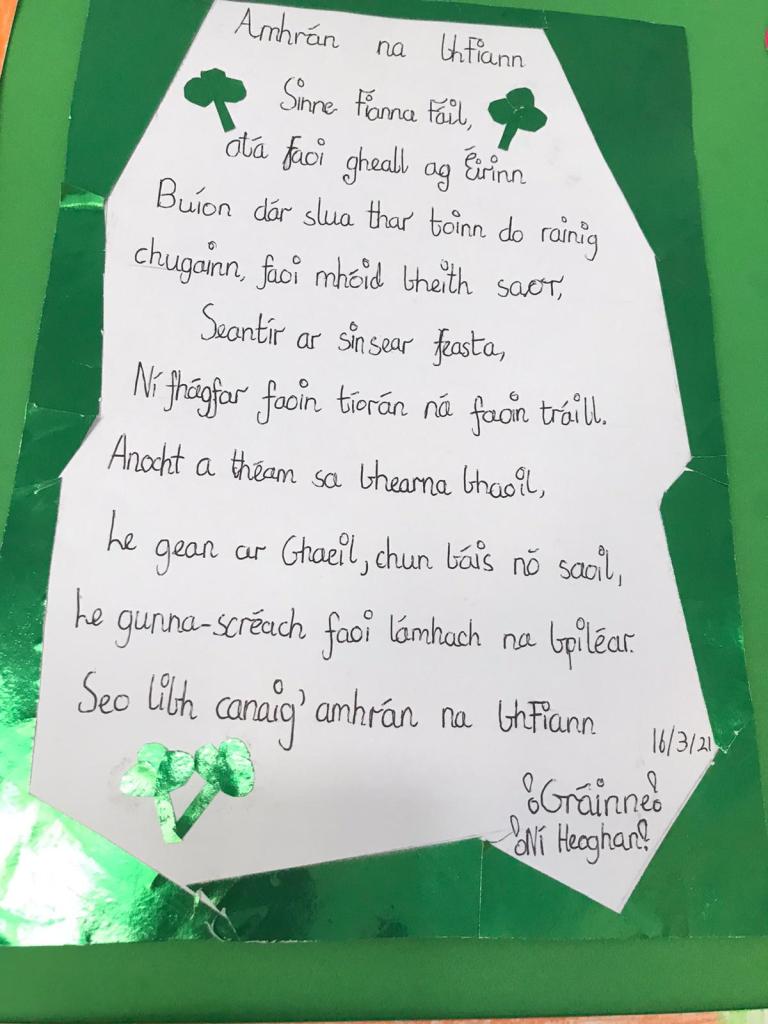 Amhrán na bhFiann
Sinne Fianna Fáil,
atá faoi gheall ag Éirinn
Buíon dár slua thar toinn do rainig
chugainn, faoi mhóid bheith saor,
Seantír ar sinsear feasta,
Ní fhágfar faoin tíorán ná faoin tráill.
Anocht a théam sa bhearna bhaoil,
Le gean ar Ghaeil, chun báis nó saoil,
Le gunna-scréach faoi lámhach na bpiléar.
Seo libh canaig' amhrán na bhFiann
16/3/21
Gráinne
Ní Heoghan